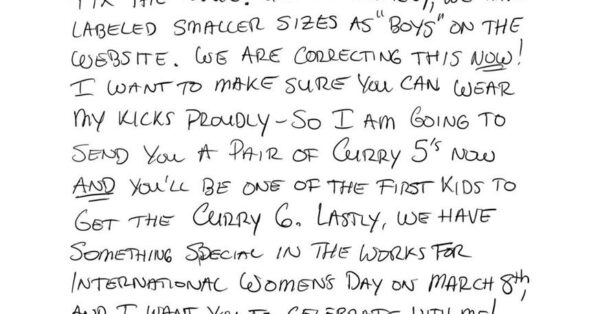 LABELED SMALLER SIZES AS "BOYS" ON THE
WEBSITE. WE ARE CORRECTING THIS NOW!
I WANT TO MAKE SURE YOU CAN WEAR
MY KICKS PROUDLY - SO I AM GOING TO
SEND YOU A PAIR OF CURRY 5'S NOW
AND YOU'LL BE ONE OF THE FIRST KIDS TO
GET THE CURRY 6. LASTLY, WE HAVE
SOMETHING SPECIAL IN THE WORKS FOR
INTERNATIONAL WOMENS DAY ON MARCH 8th,
AND I WANT YOU TO CELEBRATE WITH ME!